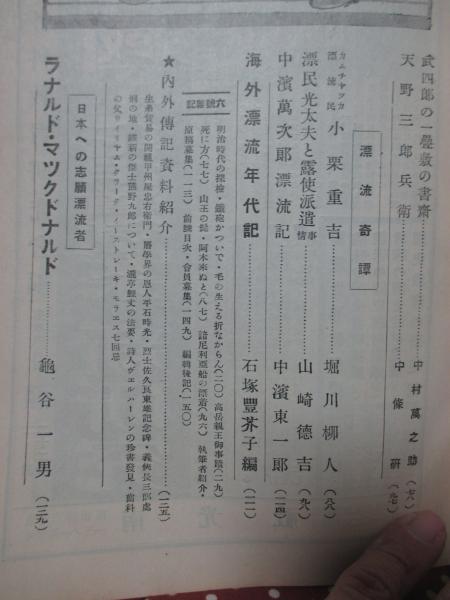 武四郎の一疊敷の書齋……中村萬之助（七八）
天野三郎兵衛……中條研（九七）
漂流奇譚
カムチヤツカ漂流民 小栗重吉……堀川柳人（六八）
漂民光太夫と露使派遣事情……山崎德吉（九八）
中濱萬次郎漂流記……中濱東一郎（一一四）
海外漂流年代記……石塚豐芥子編（一二一）
六號雜記
明治時代の探檢・鐵砲かついで・毛の生える折なからん（二〇）高岳親王御事蹟（二九）
死に方（七七）山王の猿・阿木來ぬと（八七）諾尼利亞船の漂着（九六）執筆者紹介・
原稿募集（一一三）前號目次・會員募集（一四九）編輯後記（一五〇）
★內外傳記資料紹介……（一二五）
生糸貿易の開祖甲州屋忠右衛門・曆學界の恩人平石時光・烈士佐久良東雄記念碑・義俠長三郎處
刑の地・維新の傑士熊野九郎について・瀧亭鯉丈の法要・詩人ヴェルハーレンの珍書發見・齒科
の父ウイリヤム・クラーク・イーストレーキ・モラエス七回忌
日本への志願漂流者
ラナルド・マツクドナルド……龜谷一男（一三九）